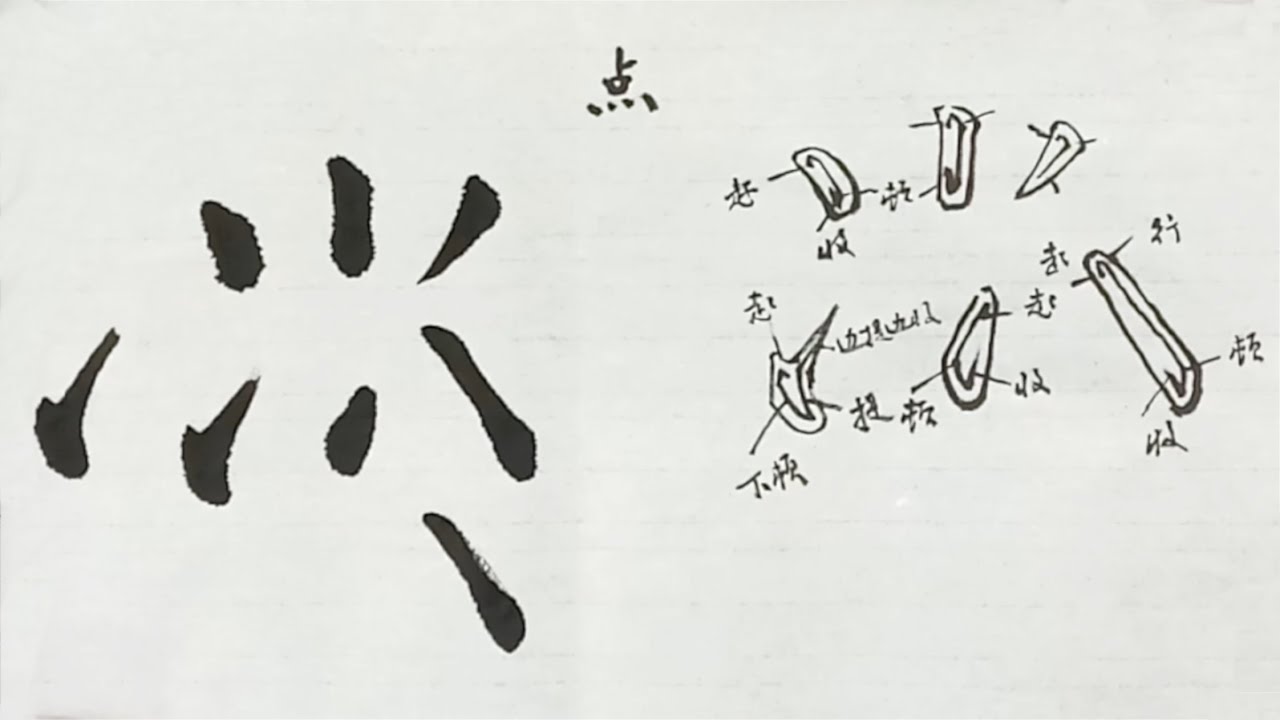 点
起 顿
收
起 行
起 边提边收 起
顿
提 顿 收
收
下顿